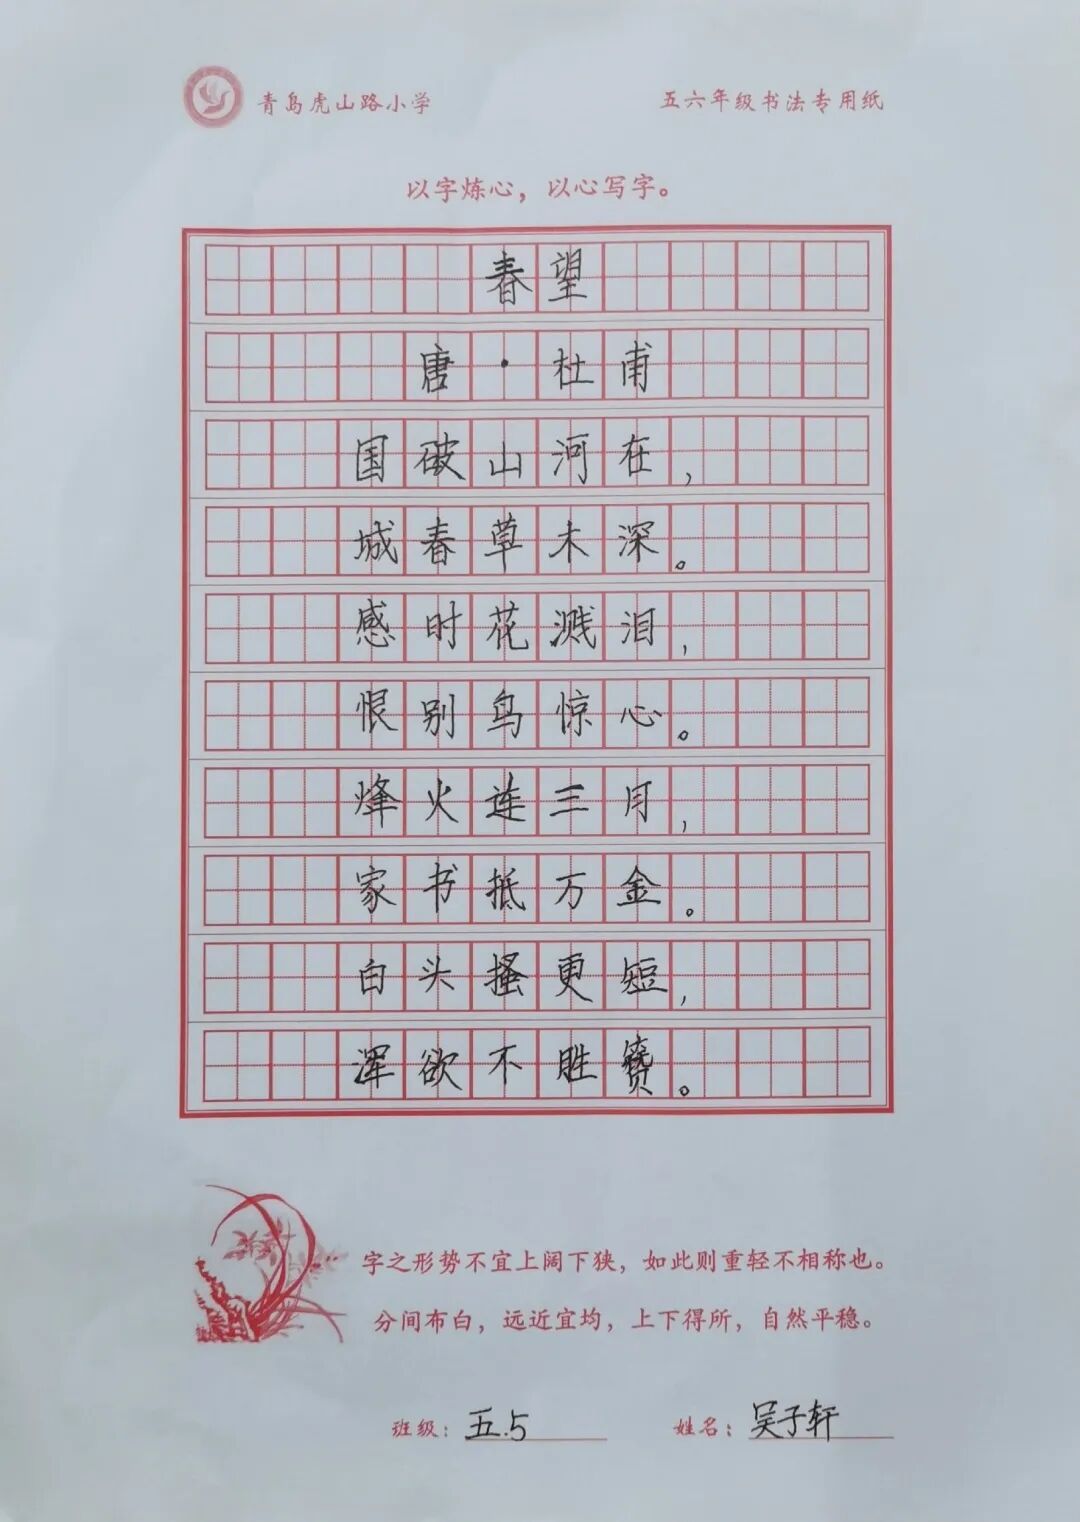 青岛虎山路小学 五六年级书法专用纸
以字炼心，以心写字。
春望
唐·杜甫
国破山河在，
城春草木深。
感时花溅泪，
恨别鸟惊心。
烽火连三月，
家书抵万金。
白头搔更短，
浑欲不胜簪。
字之形势不宜上阔下狭，如此则重轻不相称也。
分间布白，远近宜均，上下得所，自然平稳。
班级：五.5 姓名：吴子轩